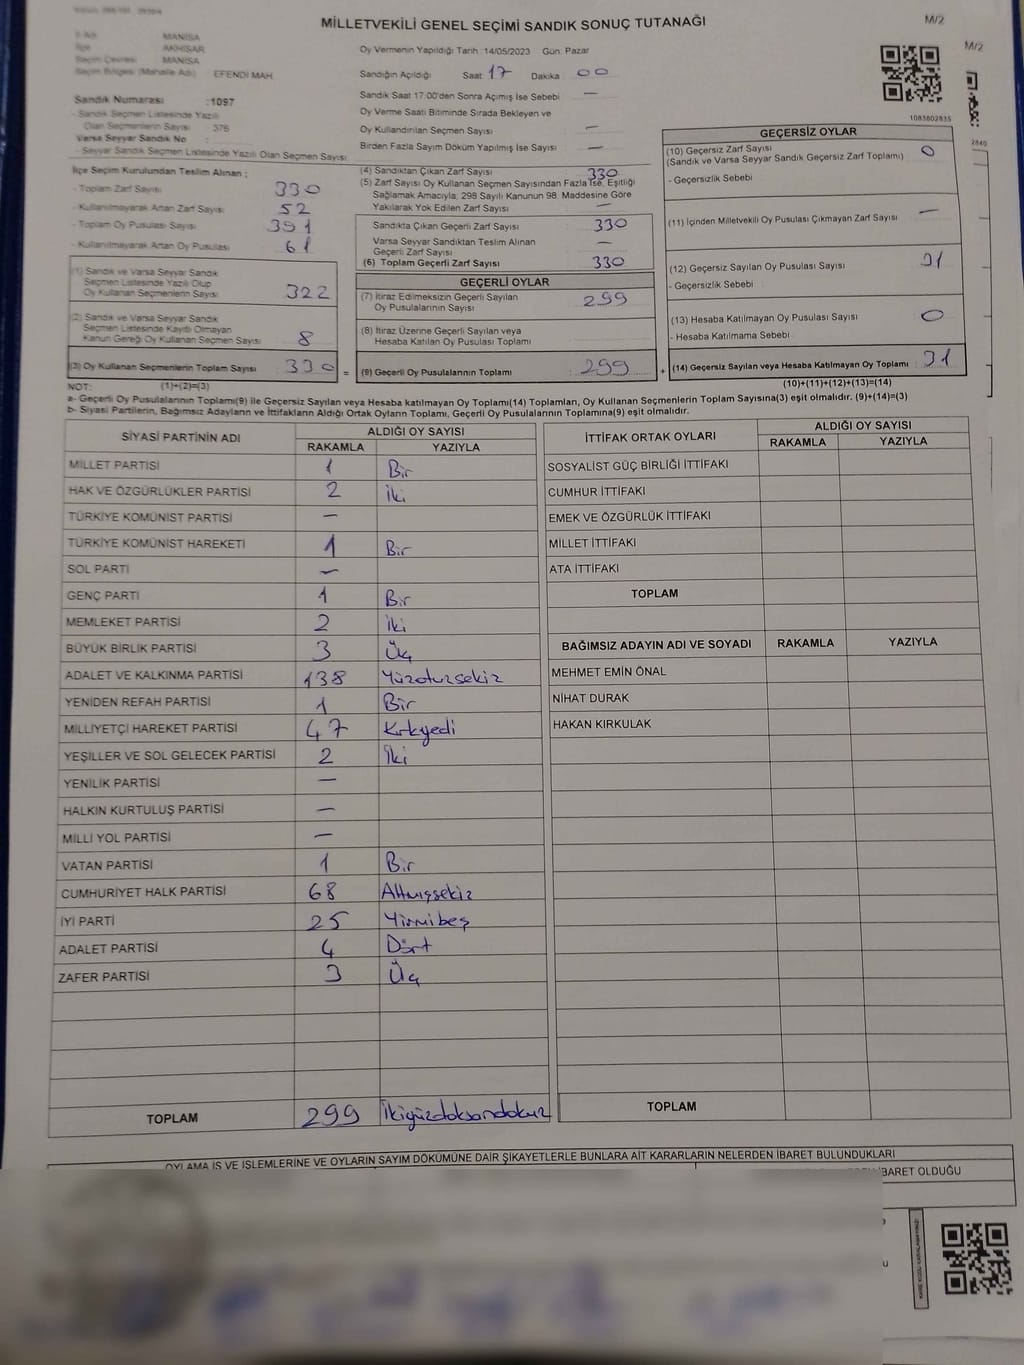 MİLLETVEKİLİ GENEL SEÇİMİ SANDIK SONUÇ TUTANAĞI
M/2
M/2
MANİSA
AKHİSAR
MANİSA
Seçim Bölgesi (Mahalle Adı) : EFENDİ MAH.
Sandık Numarası :1097
- Sandık Seçmen Listesinde Yazılı
Olan Seçmenlerin Sayısı 376
Varsa Seyyar Sandık No :
- Seyyar Sandık Seçmen Listesinde Yazılı Olan Seçmen Sayısı:
İlçe Seçim Kurulundan Teslim Alınan ;
- Toplam Zarf Sayısı 330
- Kullanılmayarak Artan Zarf Sayısı 52
- Toplam Oy Pusulası Sayısı 391
- Kullanılmayarak Artan Oy Pusulası 61
(1) Sandık ve Varsa Seyyar Sandık
Seçmen Listesinde Yazılı Olup
Oy Kullanan Seçmenlerin Sayısı 322
(2) Sandık ve Varsa Seyyar Sandık
Seçmen Listesinde Kayıtlı Olmayan
Kanun Gereği Oy Kullanan Seçmen Sayısı 8
(3) Oy Kullanan Seçmenlerin Toplam Sayısı 330 =
Oy Vermenin Yapıldığı Tarih :14/05/2023 Gün: Pazar
Sandığın Açıldığı Saat 17 Dakika 00
Sandık Saat 17:00'den Sonra Açımış İse Sebebi —
Oy Verme Saati Bitiminde Sırada Bekleyen ve
Oy Kullandırılan Seçmen Sayısı —
Birden Fazla Sayım Döküm Yapılmış İse Sayısı —
(4) Sandıktan Çıkan Zarf Sayısı 330
(5) Zarf Sayısı Oy Kullanan Seçmen Sayısından Fazla İse, Eşitliği
Sağlamak Amacıyla; 298 Sayılı Kanunun 98. Maddesine Göre
Yakılarak Yok Edilen Zarf Sayısı —
Sandıkta Çıkan Geçerli Zarf Sayısı 330
Varsa Seyyar Sandıktan Teslim Alınan
Geçerli Zarf Sayısı —
(6) Toplam Geçerli Zarf Sayısı 330
GEÇERLİ OYLAR
(7) İtiraz Edilmeksizin Geçerli Sayılan
Oy Pusulalarının Sayısı 299
(8) İtiraz Üzerine Geçerli Sayılan veya
Hesaba Katılan Oy Pusulası Toplamı
(9) Geçerli Oy Pusulalarının Toplamı 299 +
1083802835
2840
GEÇERSİZ OYLAR
(10) Geçersiz Zarf Sayısı 0
(Sandık ve Varsa Seyyar Sandık Geçersiz Zarf Toplamı)
- Geçersizlik Sebebi
(11) İçinden Milletvekili Oy Pusulası Çıkmayan Zarf Sayısı —
(12) Geçersiz Sayılan Oy Pusulası Sayısı 31
- Geçersizlik Sebebi :
(13) Hesaba Katılmayan Oy Pusulası Sayısı 0
- Hesaba Katılmama Sebebi :
(14) Geçersiz Sayılan veya Hesaba Katılmayan Oy Toplamı : 31
NOT: (1)+(2)=(3) (10)+(11)+(12)+(13)=(14)
a- Geçerli Oy Pusulalarının Toplamı(9) ile Geçersiz Sayılan veya Hesaba katılmayan Oy Toplamı(14) Toplamları, Oy Kullanan Seçmenlerin Toplam Sayısına(3) eşit olmalıdır. (9)+(14)=(3)
b- Siyasi Partilerin, Bağımsız Adayların ve İttifakların Aldığı Ortak Oyların Toplamı, Geçerli Oy Pusulalarının Toplamına(9) eşit olmalıdır.
SİYASİ PARTİNİN ADI ALDIĞI OY SAYISI
RAKAMLA YAZIYLA
MİLLET PARTİSİ 1 Bir
HAK VE ÖZGÜRLÜKLER PARTİSİ 2 İki
TÜRKİYE KOMÜNİST PARTİSİ —
TÜRKİYE KOMÜNİST HAREKETİ 1 Bir
SOL PARTİ —
GENÇ PARTİ 1 Bir
MEMLEKET PARTİSİ 2 İki
BÜYÜK BİRLİK PARTİSİ 3 Üç
ADALET VE KALKINMA PARTİSİ 138 Yüzotuzsekiz
YENİDEN REFAH PARTİSİ 1 Bir
MİLLİYETÇİ HAREKET PARTİSİ 47 Kırkyedi
YEŞİLLER VE SOL GELECEK PARTİSİ 2 İki
YENİLİK PARTİSİ —
HALKIN KURTULUŞ PARTİSİ —
MİLLİ YOL PARTİSİ —
VATAN PARTİSİ 1 Bir
CUMHURİYET HALK PARTİSİ 68 Altmışsekiz
İYİ PARTİ 25 Yirmibeş
ADALET PARTİSİ 4 Dört
ZAFER PARTİSİ 3 Üç
TOPLAM 299 İkiyüzdoksandokuz
İTTİFAK ORTAK OYLARI ALDIĞI OY SAYISI
RAKAMLA YAZIYLA
SOSYALİST GÜÇ BİRLİĞİ İTTİFAKI
CUMHUR İTTİFAKI
EMEK VE ÖZGÜRLÜK İTTİFAKI
MİLLET İTTİFAKI
ATA İTTİFAKI
TOPLAM
BAĞIMSIZ ADAYIN ADI VE SOYADI RAKAMLA YAZIYLA
MEHMET EMİN ÖNAL
NİHAT DURAK
HAKAN KIRKULAK
TOPLAM
OYLAMA İŞ VE İŞLEMLERİNE VE OYLARIN SAYIM DÖKÜMÜNE DAİR ŞİKAYETLERLE BUNLARA AİT KARARLARIN NELERDEN İBARET BULUNDUKLARI
İBARET OLDUĞU